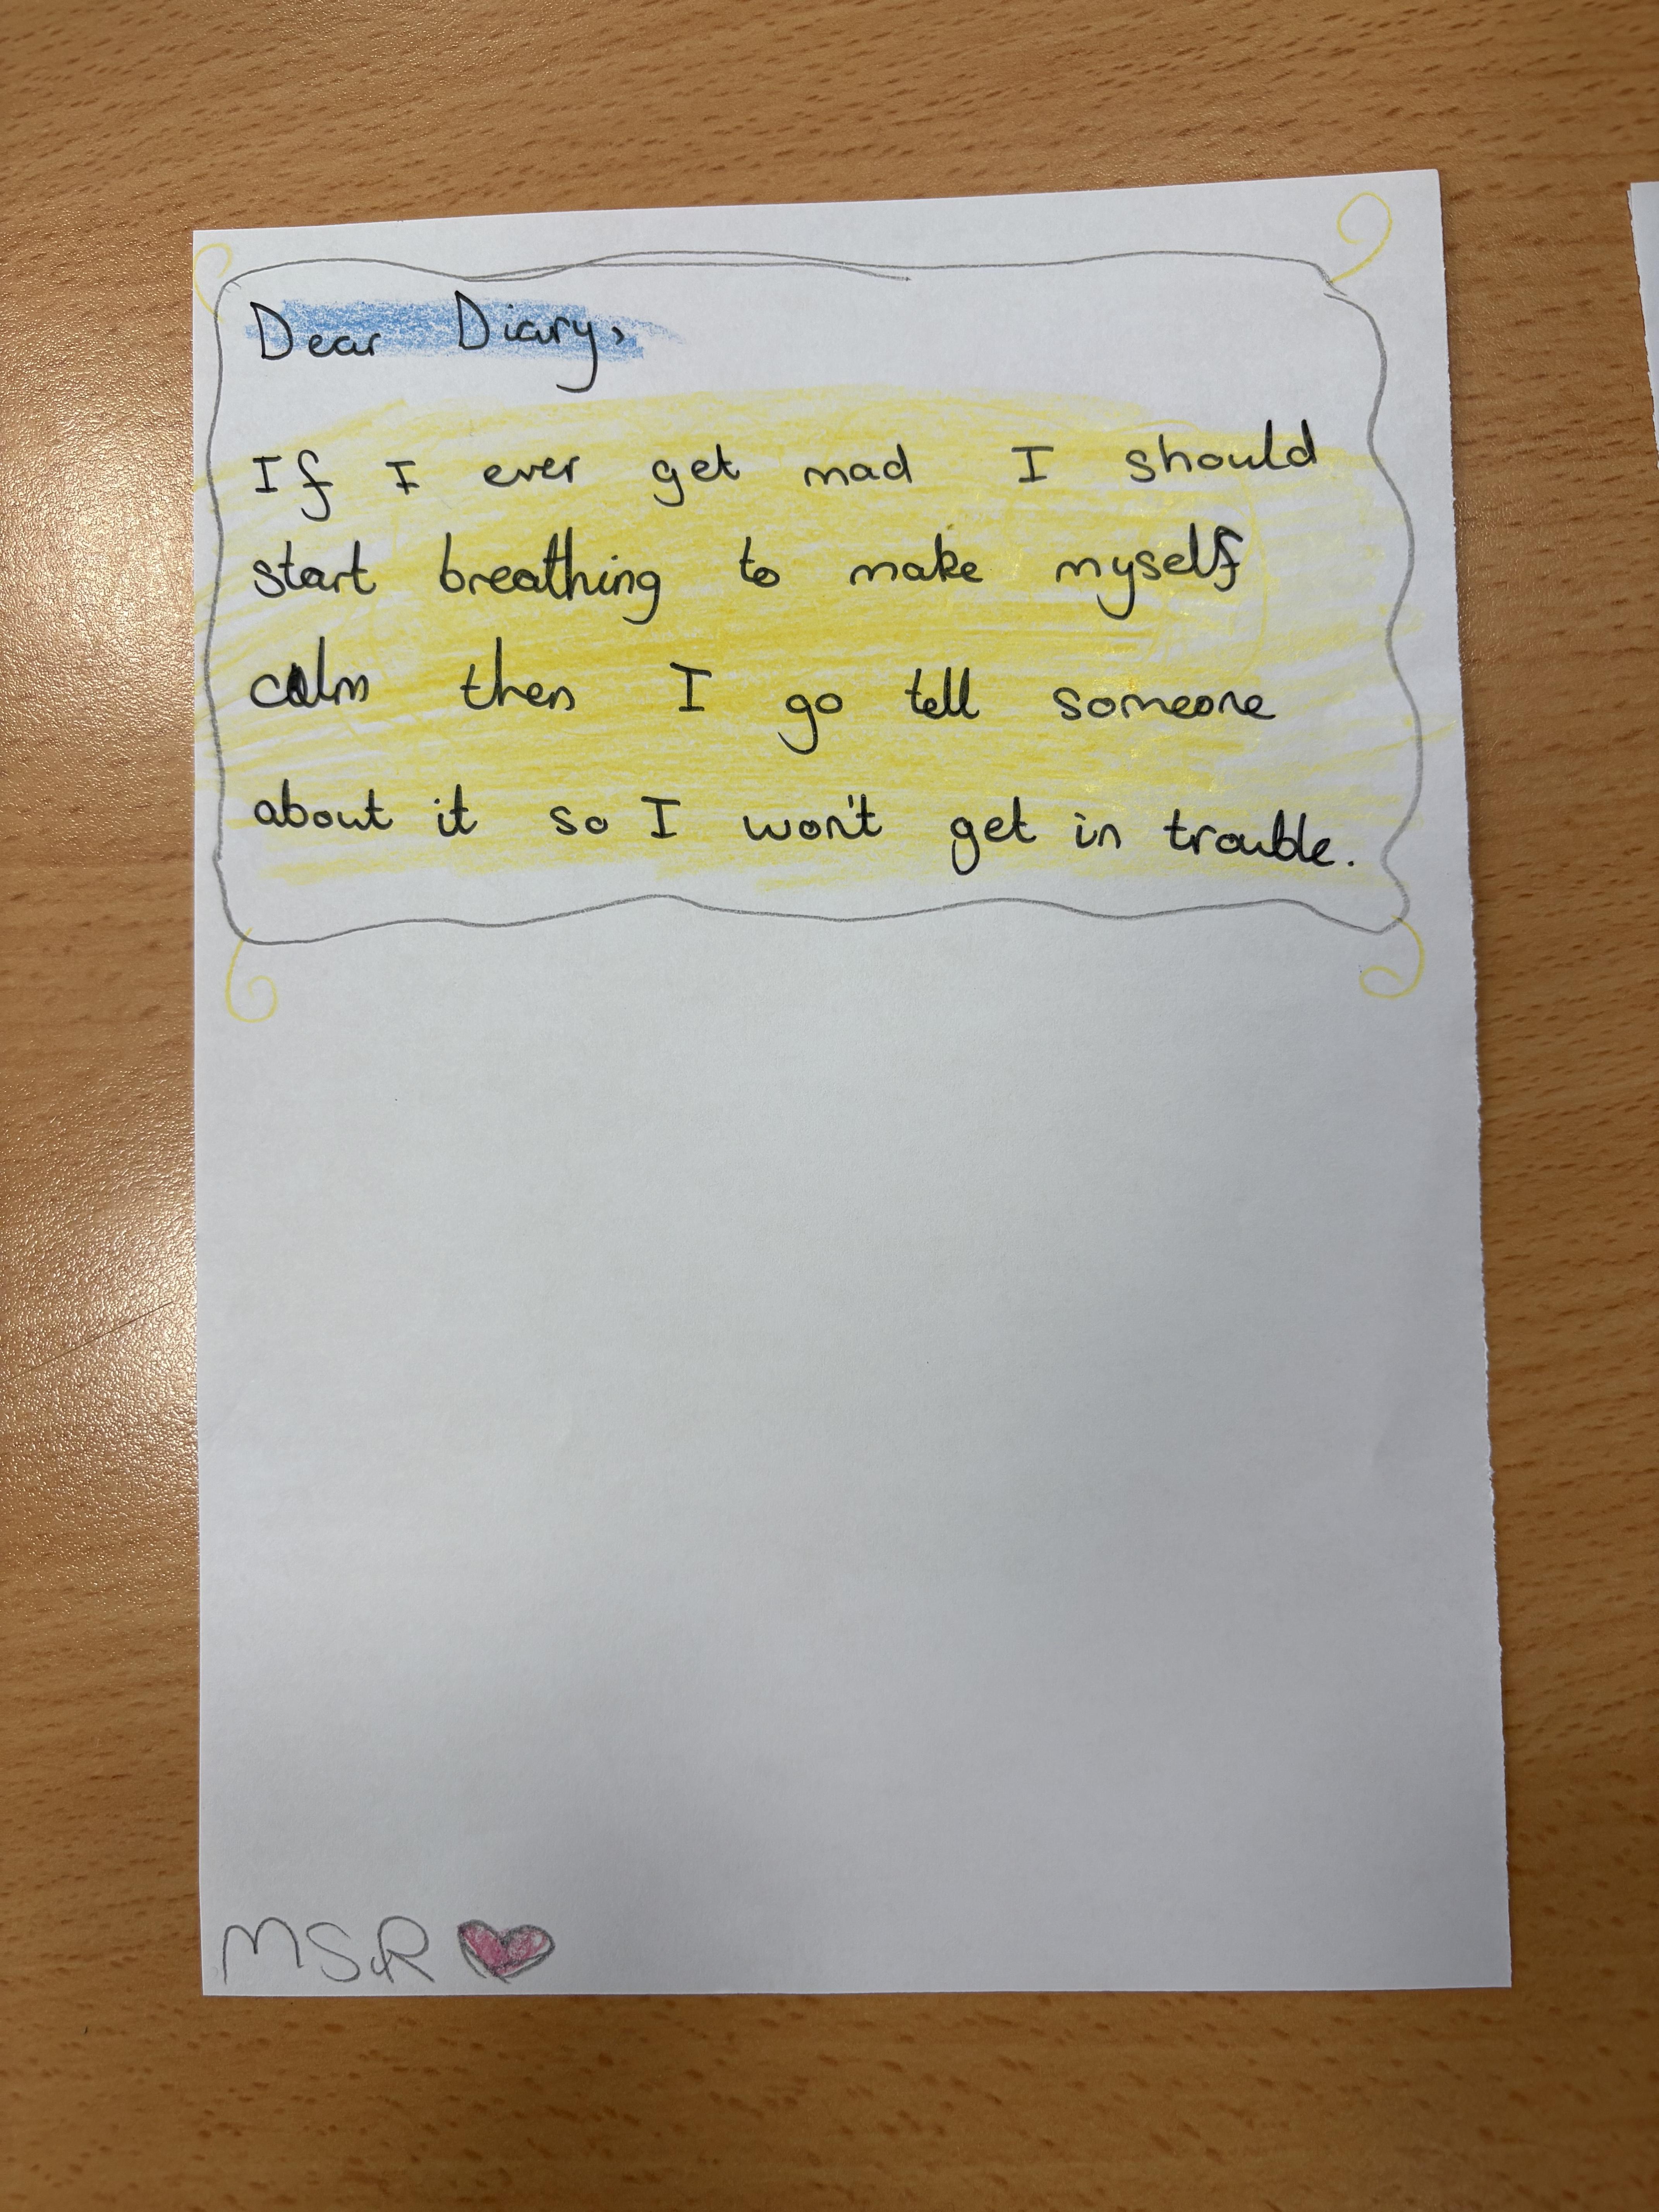 Dear Diary,
If I ever get mad I should
start breathing to make myself
calm then I go tell someone
about it so I won't get in trouble.
MSR